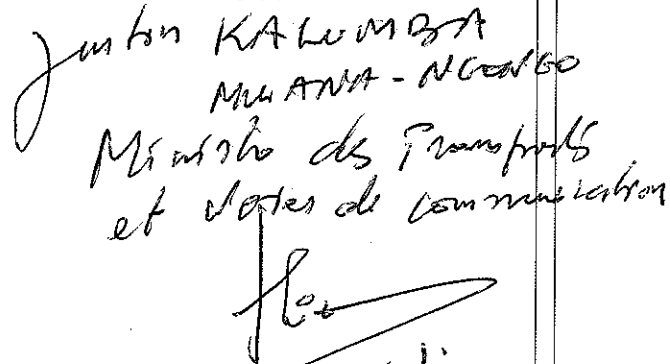 Justin KALUMBA
MWANA-NGONGO
Ministre des Transports
et Voies de communication